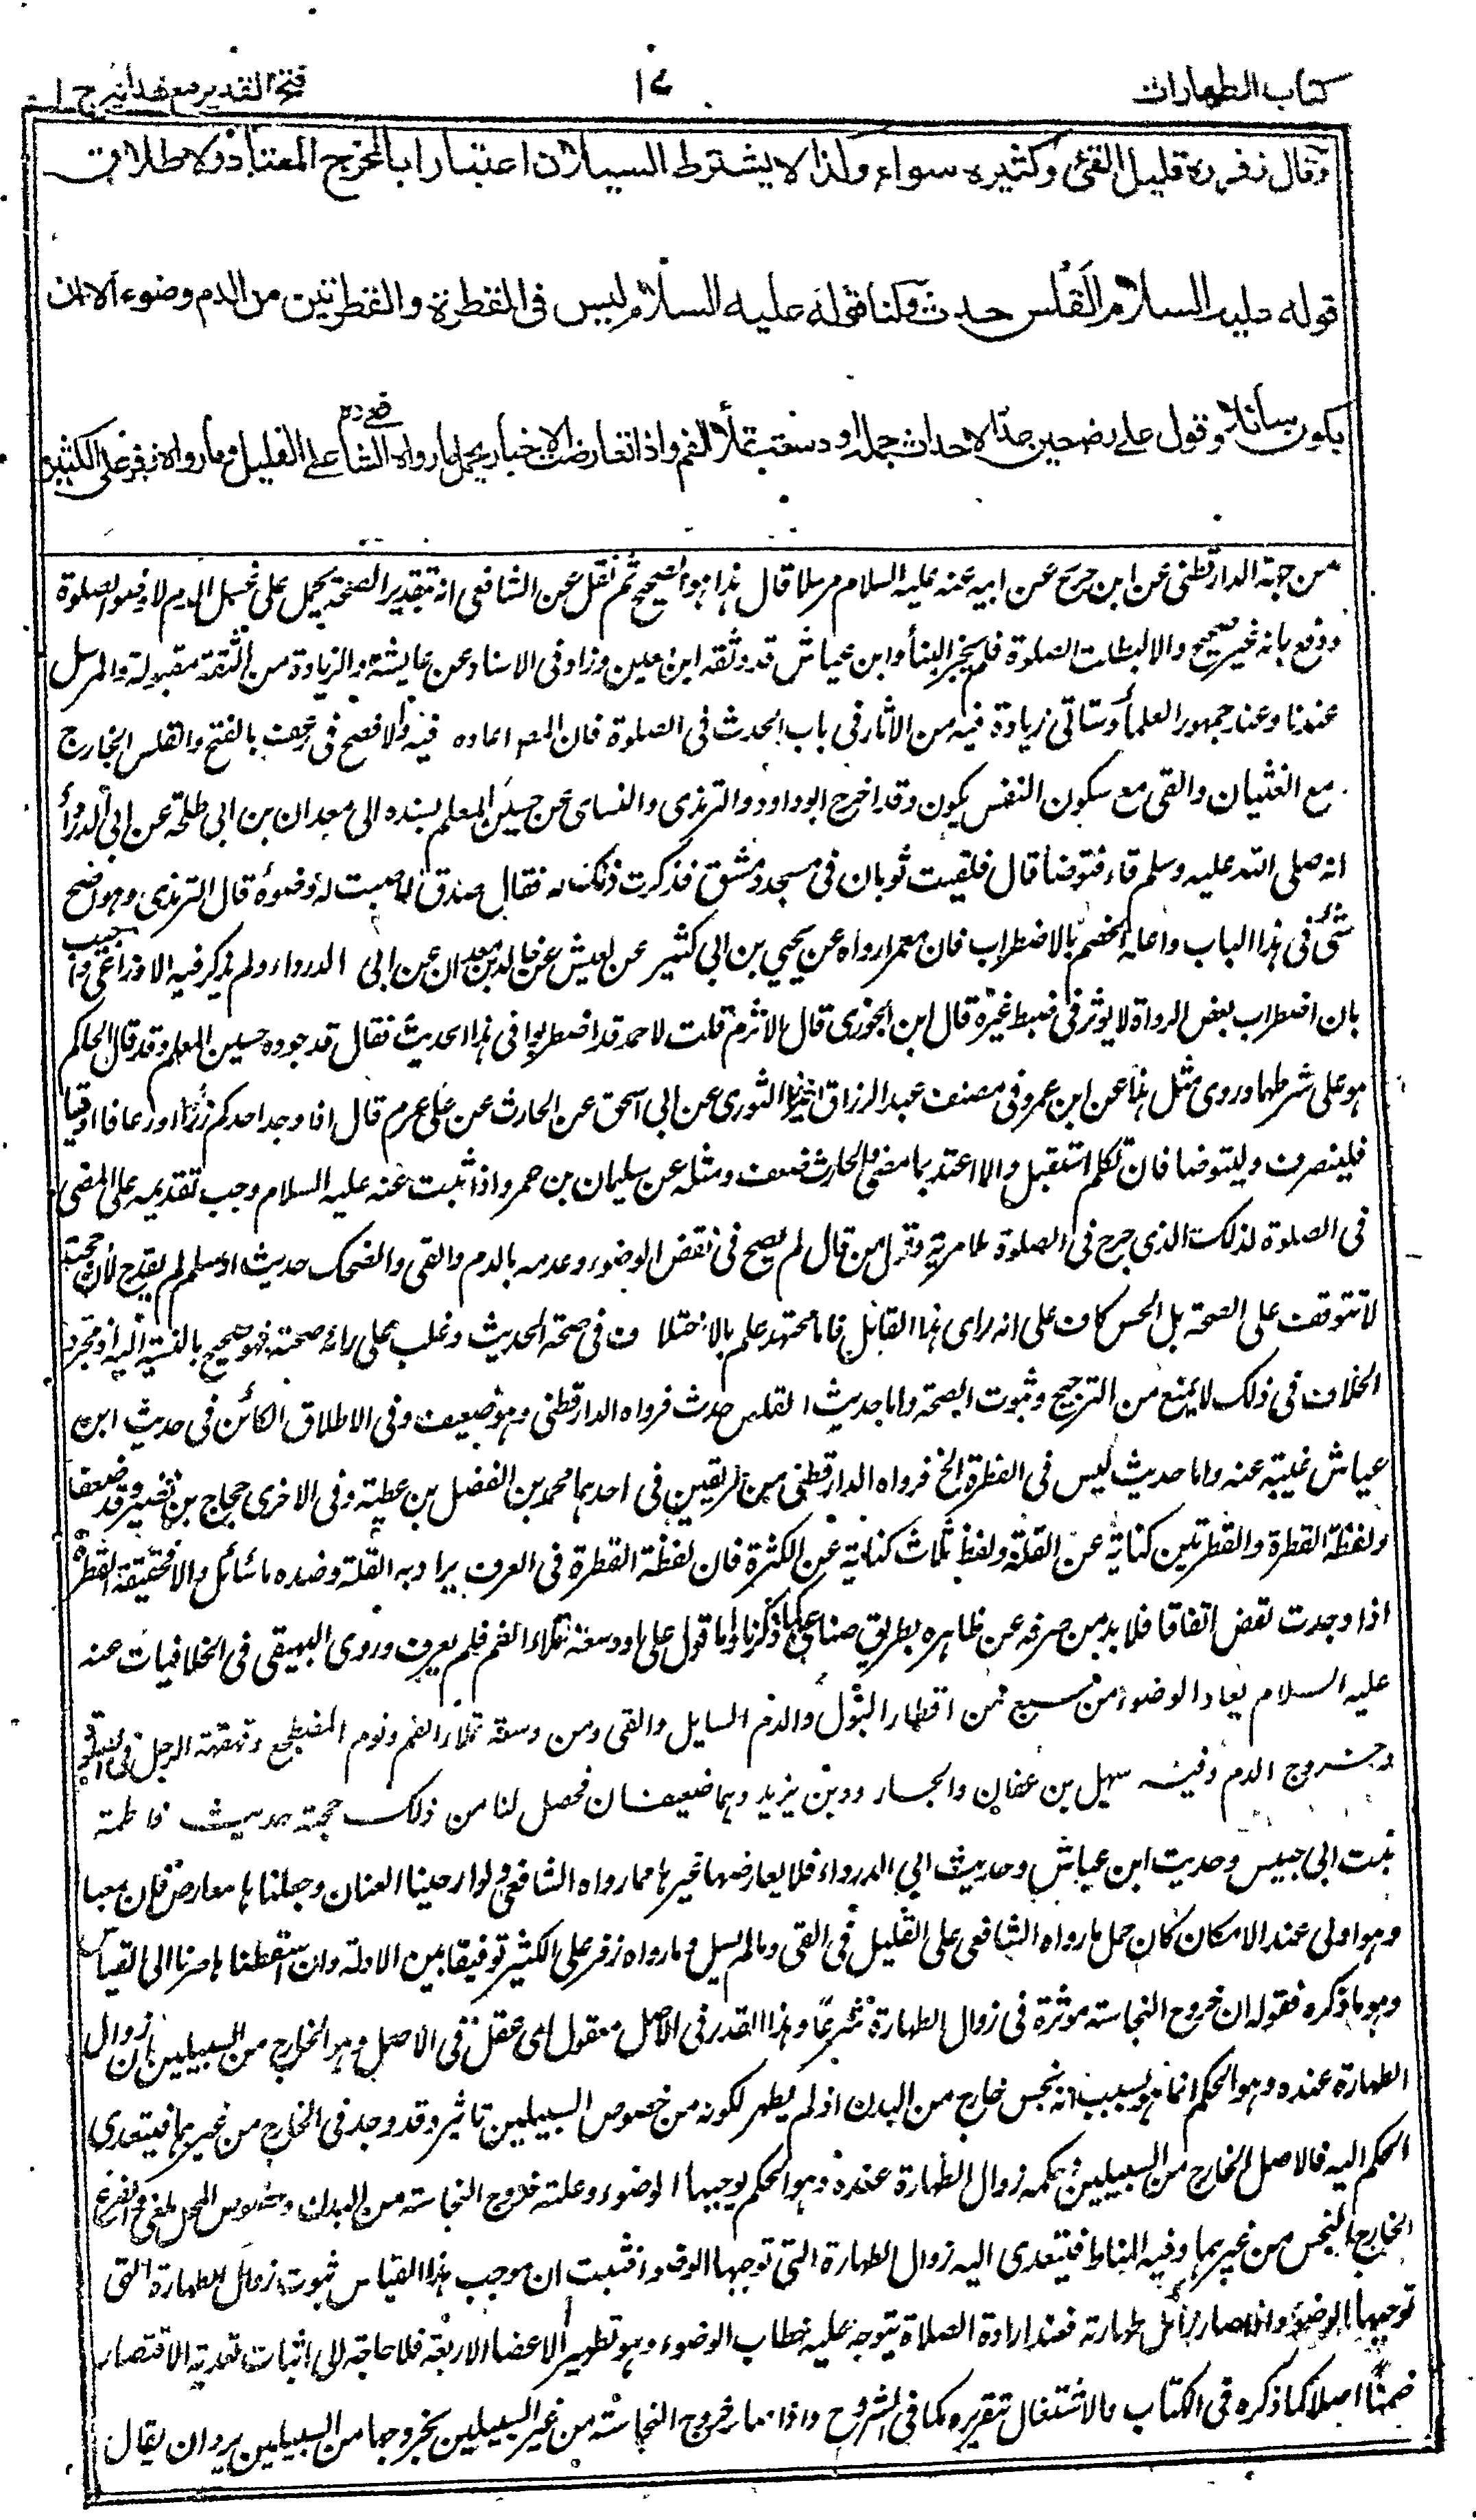 كتاب الطهارات
١٧
فتح القدير مع هدايه ج ١
وقال زفر ره قليل القئ وكثيره سواء وكذا لا يشترط السيلان اعتبارا بالمخرج المعتاد ولاطلاق
قوله عليه السلام القلس حدث ولنا قوله عليه السلام ليس في القطرة والقطرتين من الدم وضوء الا ان
يكون سائلا وقول علي رض حين عد الاحداث جملة او دسعة تملأ الفم واذا تعارضت الاخبار يحمل ما رواه الشافعي على القليل وما رواه زفر على الكثير
من جهة الدارقطني عن ابن جريج عن ابيه عنه عليه السلام مرسلا قال هذا هو الصحيح ثم نقل عن الشافعي انه بتقدير الصحة يحمل على غسل الدم لا وضوء الصلوة
ودفع بانه غير صحيح والا لبطلت الصلوة فلم يجز البناء وابن عياش قد وثقه ابن معين وزاد في الاسناد عن عايشة والزيادة من الثقة مقبولة والمرسل
عندنا وعند جمهور العلماء وستاتي زيادة فيه من الاثار في باب الحدث في الصلوة فان المص اعاده فيه والافصح في رعفت بالفتح والقلس الخارج
مع الغثيان والقي مع سكون النفس يكون وقد اخرج ابو داود والترمذي والنساي عن حسين المعلم بسنده الى معدان بن ابي طلحة عن ابي الدرداء
انه صلى الله عليه وسلم قاء فتوضأ قال فلقيت ثوبان في مسجد دمشق فذكرت ذلك له فقال صدق انا صببت له وضوءه قال الترمذي وهو اصح
شئ في هذا الباب واعله الخصم بالاضطراب فان معمرا رواه عن يحيي بن ابي كثير عن يعيش عن خالد بن معدان عن ابي الدرداء ولم يذكر فيه الاوزاعي واجيب
بان اضطراب بعض الرواة لا يوثر في ضبط غيره قال ابن الجوزي قال الاثرم قلت لاحمد قد اضطربوا في هذا الحديث فقال قد جوده حسين المعلم وقد قال الحاكم
هو على شرطهما وروى مثل هذا عن ابن عمر وفي مصنف عبد الرزاق اخبرنا الثوري عن ابي اسحق عن الحارث عن علي عرم قال اذا وجد احدكم رزءا او رعافا او قيا
فلينصرف وليتوضا فان تكلم استقبل والا اعتد بما مضى والحارث ضعف ومثله عن سليمان بن عمر واذا ثبت عنه عليه السلام وجب تقديمه على المضي
في الصلوة لذلك الذي جرح في الصلوة بلا مرية وقول من قال لم يصح في نقض الوضوء وعدمه بالدم والقي والضحك حديث ان سلم لم يقدح لان حجيته
لا تتوقف على الصحة بل الحسن كاف على انه راي هذا القايل فاما مجتهد علم بالاختلاف في صحة الحديث وغلب على رائه صحته فهو صحيح بالنسبة اليه اذ مجرد
الخلاف في ذلك لا يمنع من الترجيح وثبوت الصحة واما حديث القلس حدث فرواه الدارقطني وهو ضعيف وفي الاطلاق الكائن في حديث ابن
عياش غنية عنه واما حديث ليس في القطرة الخ فرواه الدارقطني من طريقين في احدهما محمد بن الفضل بن عطية وفي الاخرى حجاج بن نصير وقد ضعفا
ولفظة القطرة والقطرتين كناية عن القلة ولفظ ثلاث كناية عن الكثرة فان لفظة القطرة في العرف يراد به القلة وضده ما سائل والا فحقيقة القطرة
اذا وجدت نقض اتفاقا فلا بد من صرفه عن ظاهره بطريق صناعي كما ذكرنا واما قول علي او دسعة تملاء الفم فلم يعرف وروى البيهقي في الخلافيات عنه
عليه السلام يعاد الوضوء من سبع من اقطار البول والدم السايل والقي ومن دسعة تملأ الفم ونوم المضطجع وقهقهة الرجل في الصلوة
وخروج الدم وفيه سهيل بن عفان والجارود بن يزيد وهما ضعيفان فحصل لنا من ذلك حجة حديث فاطمة
بنت ابي حبيس وحديث ابن عياش وحديث ابي الدرداء فلا يعارضها غيرها مما رواه الشافعي ولو ارخينا العنان وجعلناها معارض فان جمعا
وهو اولى عند الامكان كان حمل ما رواه الشافعي على القليل في القي وما لم يسل وما رواه زفر على الكثير توفيقا بين الادلة وان اسقطناها صرنا الى القياس
وهو ما ذكره فقوله ان خروج النجاسة موثرة في زوال الطهارة شرعا وهذا القدر في الاصل معقول اي عقل في الاصل وهو الخارج من السبيلين ان زوال
الطهارة عنده وهو الحكم انما هو بسبب انه نجس خارج من البدن اذ لم يظهر لكونه من خصوص السبيلين تاثير وقد وجد في الخارج من غيرهما فيتعدى
الحكم اليه فالاصل الخارج من السبيلين وحكمه زوال الطهارة عنده وهو الحكم يوجبها الوضوء وعلته خروج النجاسة من البدن وخصوص المحل ملغى والفرع
الخارج النجس من غيرهما وفيه المناط فيتعدى اليه زوال الطهارة التي توجبها الوضوء فثبت ان موجب هذا القياس ثبوت زوال الطهارة التي
توجبها الوضوء واذا صار زائل طهارته فعند ارادة الصلاة يتوجه عليه خطاب الوضوء وهو تطهير الاعضا الاربعة فلا حاجة الى اثبات تعدية الاقتصار
ضمنا اصلا كما ذكره في الكتاب فالاشتغال بتقريره كما في الشروح واذا صار خروج النجاسة من غير السبيلين كخروجها من السبيلين يرد ان يقال